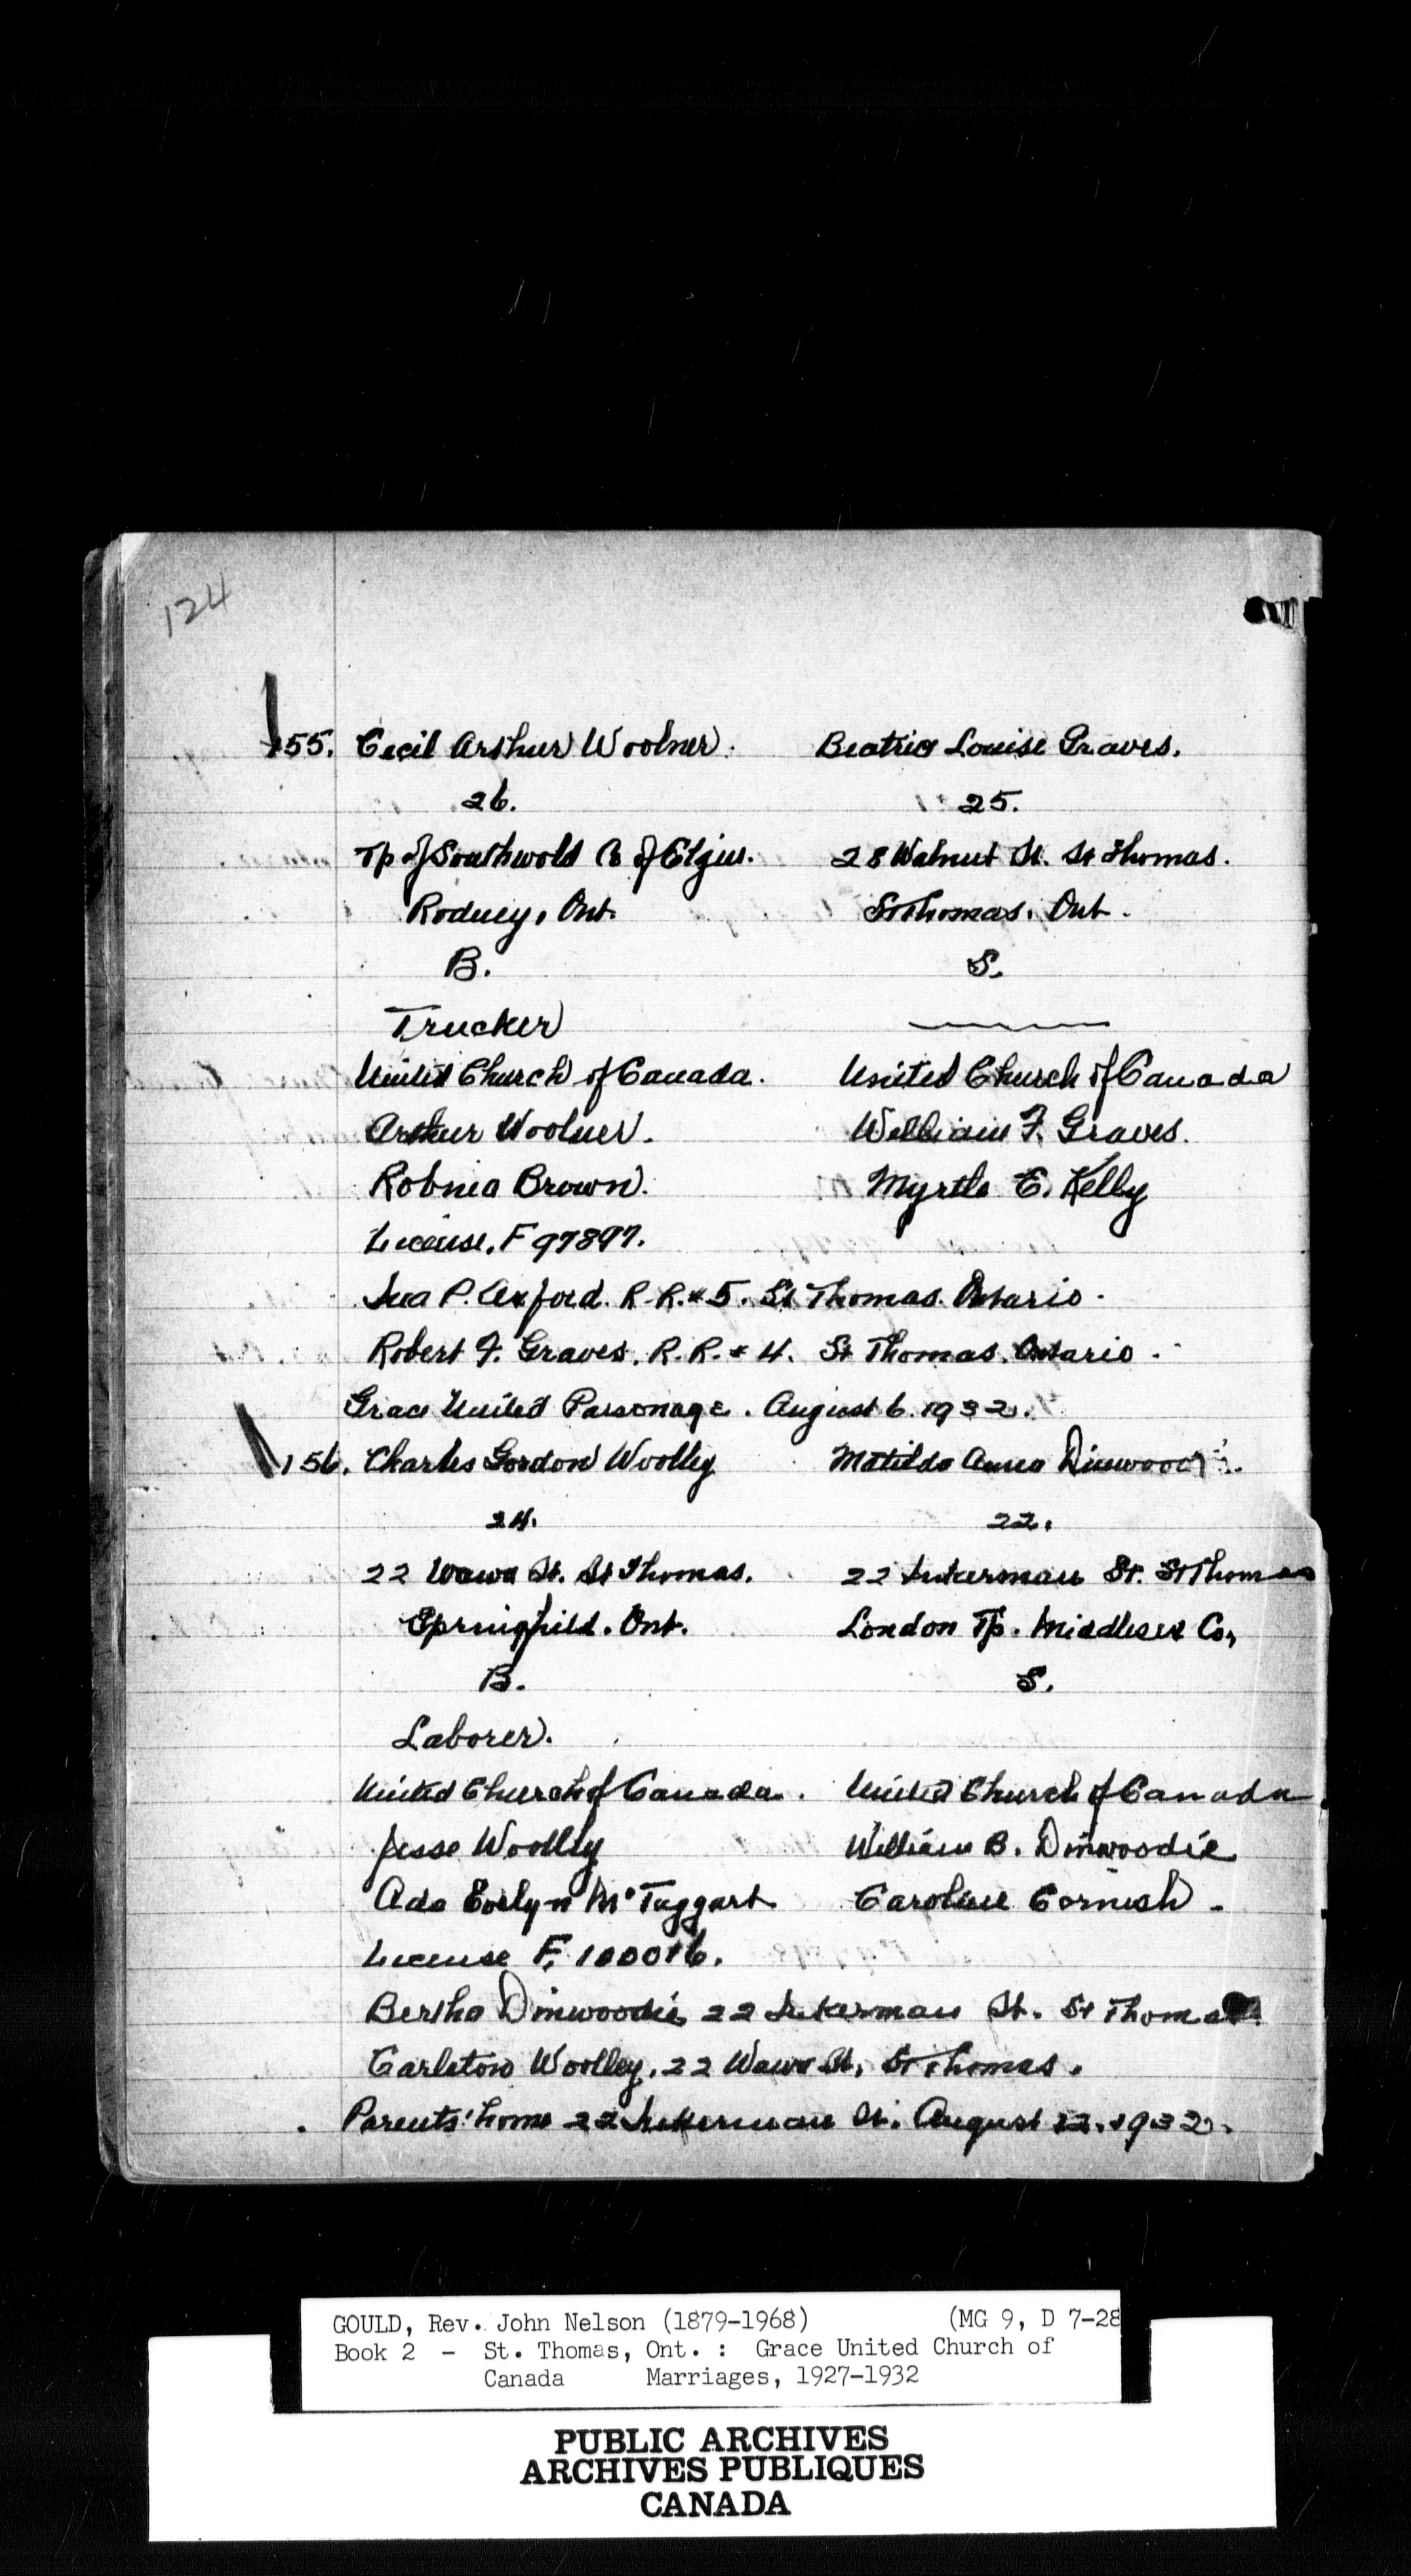 124
155. Cecil Arthur Woolner. Beatrice Louise Graves.
26. 25.
Tp of Southwold Co of Elgin. 28 Walnut St. St Thomas.
Rodney, Ont. St Thomas. Ont.
B. S.
Trucker
United Church of Canada. United Church of Canada
Arthur Woolner. William F. Graves.
Robnia Brown. Myrtle E. Kelly
License. F 97897.
Iva P. Axford. R.R.#5. St. Thomas. Ontario.
Robert F. Graves. R.R.#4. St Thomas. Ontario.
Grace United Parsonage. August 6. 1932.
156. Charles Gordon Woolley Matilda Anna Dinwoodie.
24. 22.
22 Wawa St. St Thomas. 22 Inkerman St. St Thomas
Springfield. Ont. London Tp. Middlesex Co,
B. S.
Laborer.
United Church of Canada. United Church of Canada
Jesse Woolley William B. Dinwoodie
Ada Evelyn McTaggart Caroline Cornish.
License F, 100016.
Bertha Dinwoodie 22 Inkerman St. St Thomas.
Carleton Woolley, 22 Wawa St, St Thomas.
Parents' home 22 Inkerman St. August 12. 1932.
GOULD, Rev. John Nelson (1879-1968) (MG 9, D 7-28
Book 2 - St. Thomas, Ont. : Grace United Church of
Canada Marriages, 1927-1932
PUBLIC ARCHIVES
ARCHIVES PUBLIQUES
CANADA